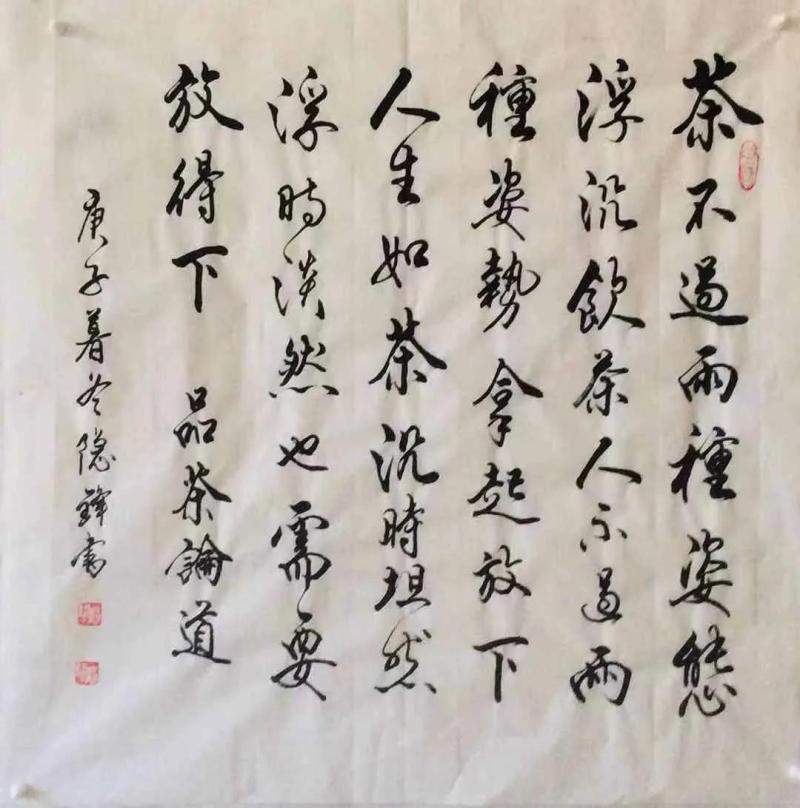 茶不過兩種姿態
浮沉飲茶人不過兩
種姿勢拿起放下
人生如茶沉時坦然
浮時淡然也需要
放得下 品茶論道
庚子暮冬隐鋒書